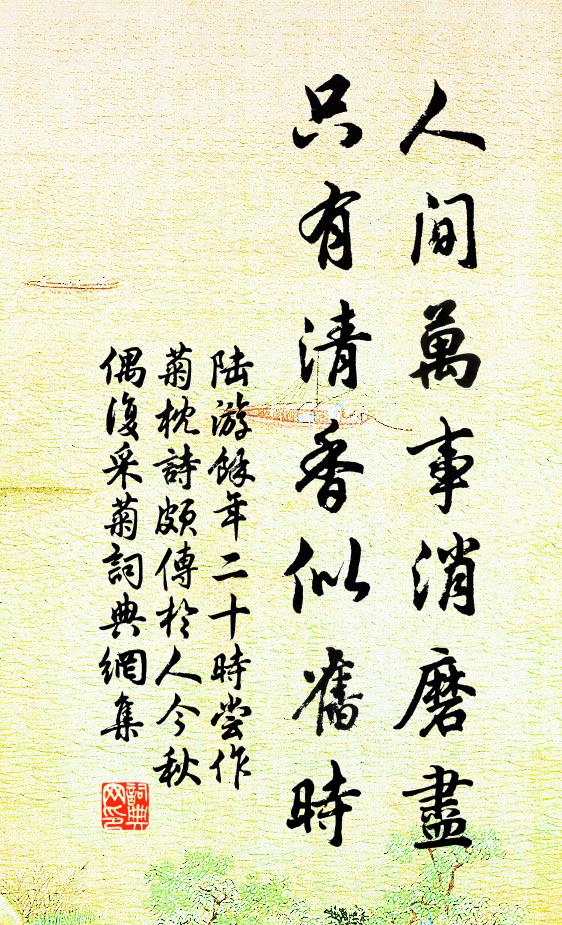 人间萬事消磨盡
只有清香似舊時
陆游餘年二十時嘗作
菊枕詩頗傳於人今秋
偶復采菊詞典網集
詞典
网印